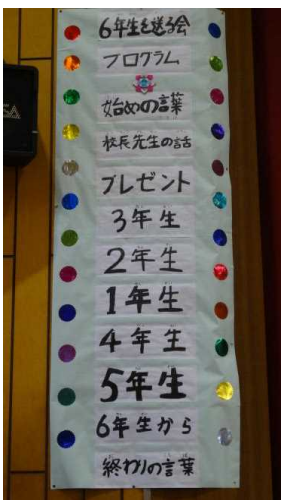 6年生を送る会
プログラム
始めの言葉
校長先生の話
プレゼント
3年生
2年生
1年生
4年生
5年生
6年生から
終わりの言葉